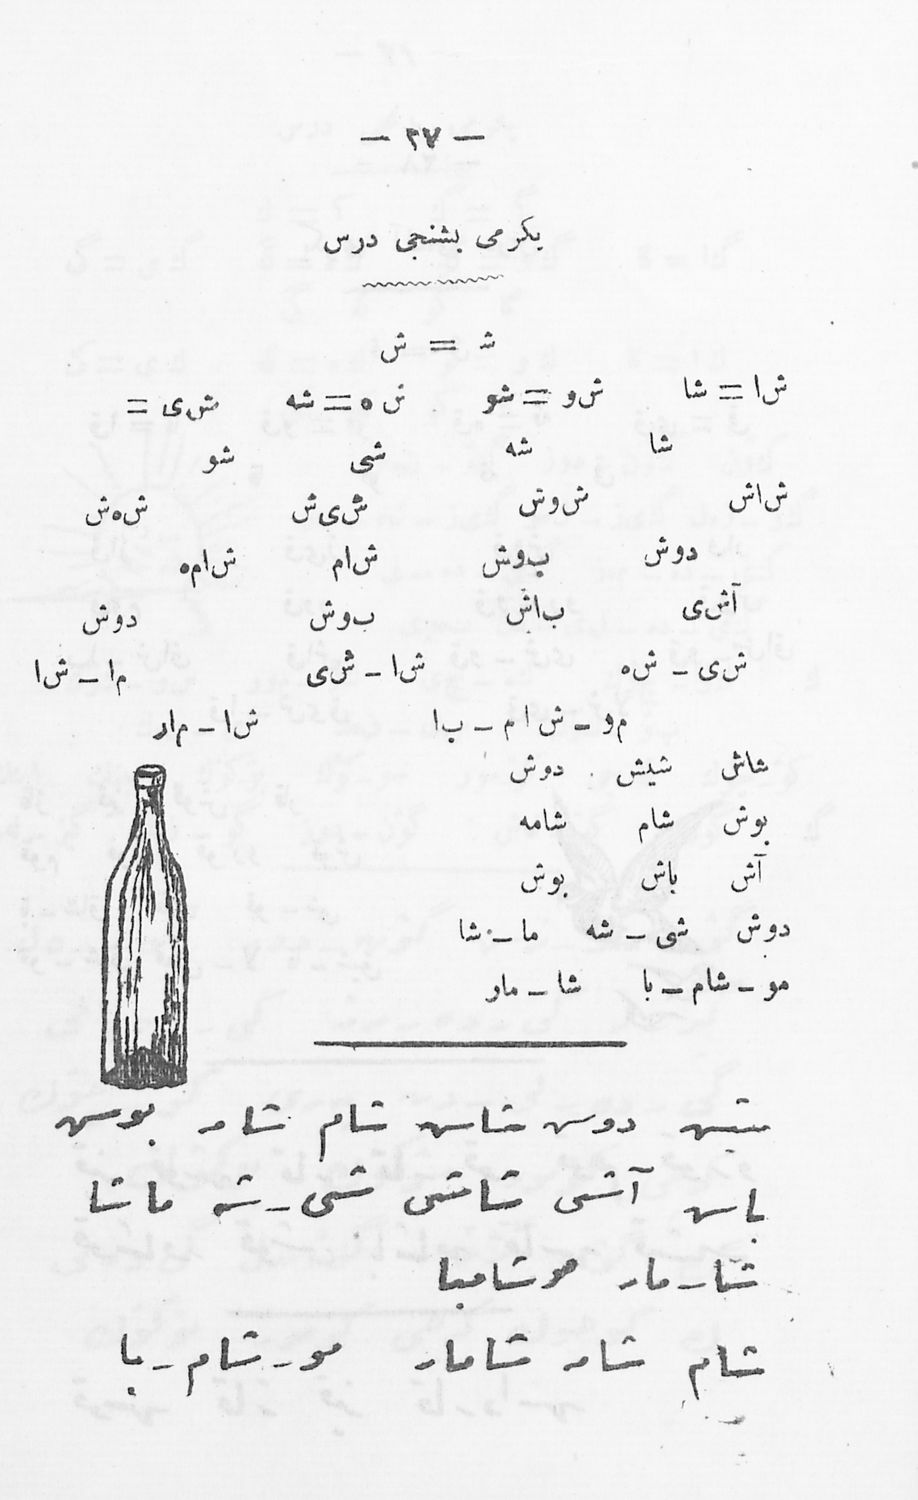 — ٢٧ —
یكرمی بشنجی درس
شـ = ش
ش‌ا = شا ش‌و = شو ش‌ه = شه ش‌ی =
شا شه شی شو
ش‌اش ش‌وش ش‌ی‌ش ش‌ه‌ش
دوش ب‌وش ش‌ام ش‌ام‌ه
آش‌ی ب‌اش ب‌وش دوش
ش‌ی – ش‌ه ش‌ا – ش‌ی م‌ا – ش‌ا
م‌و – ش‌ام – ب‌ا ش‌ا – م‌ار
شاش شیش دوش
بوش شام شامه
آش باش بوش
دوش شی – شه ما – شا
مو – شام – با شا – مار
شیش دوش شاش شام شار بوش
باش آشی شاشی شی – شه ماشا
شا – مار موشامبا
شام شار شامار مو – شام – با